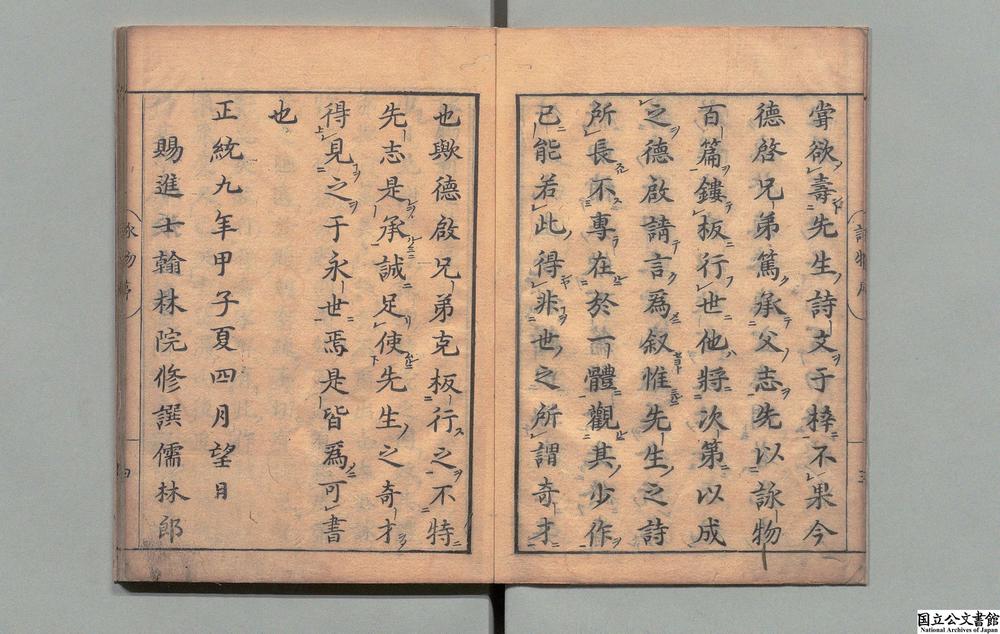 甞欲壽先生詩文于梓不果今
德啓兄弟篤承父志先以詠物
百篇鏤板行世他將次第以成
之德啟請言爲叙惟先生之詩
所長不專在於一體觀其少作
已能若此得非世之所謂奇才
也歟德啟兄弟克板行之不特
先志是承誠足使先生之奇才
得見之于永世焉是皆爲可書
也
正統九年甲子夏四月望日
賜進士翰林院修譔儒林郎
国立公文書館
National Archives of Japan